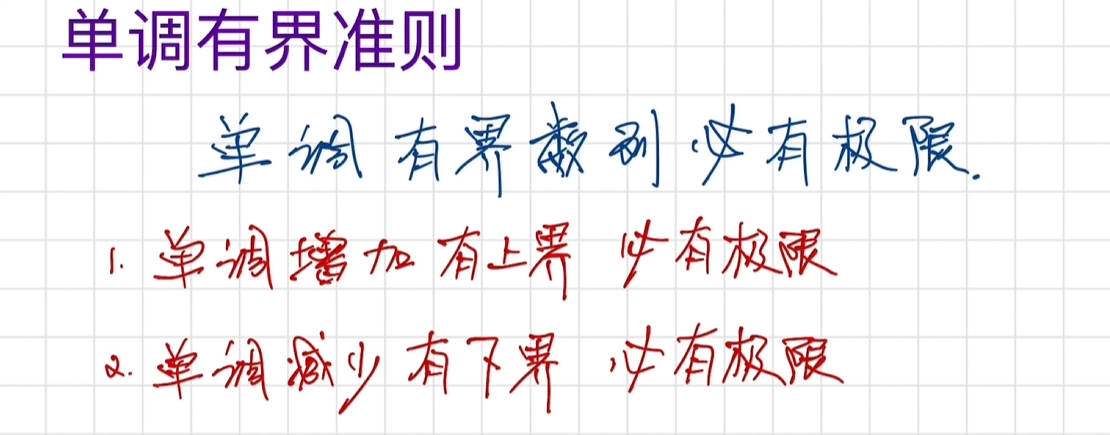 单调有界准则
单调有界数列必有极限.
1. 单调增加有上界 必有极限
2. 单调减少有下界 必有极限